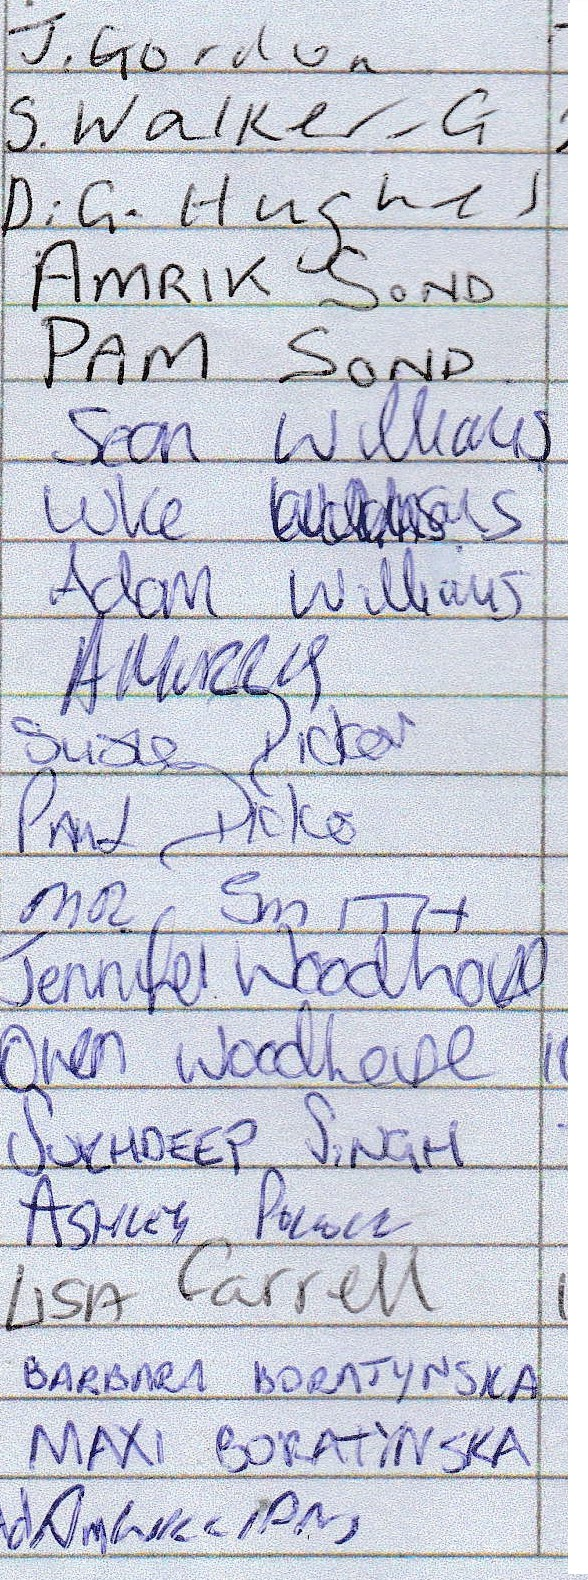 J. Gordon
S. Walker-G
D. G. Hughes
AMRIK SOND
PAM SOND
Sean Williams
Luke
Adam Williams
A Murray
Susie Picker
PAUL
MR. SMITH
Jennifer Woodhouse
Owen Woodhouse
SUKHDEEP SINGH
ASHLEY
LISA Carrell
BARBARA BORATYNSKA
MAXI BORATYNSKA